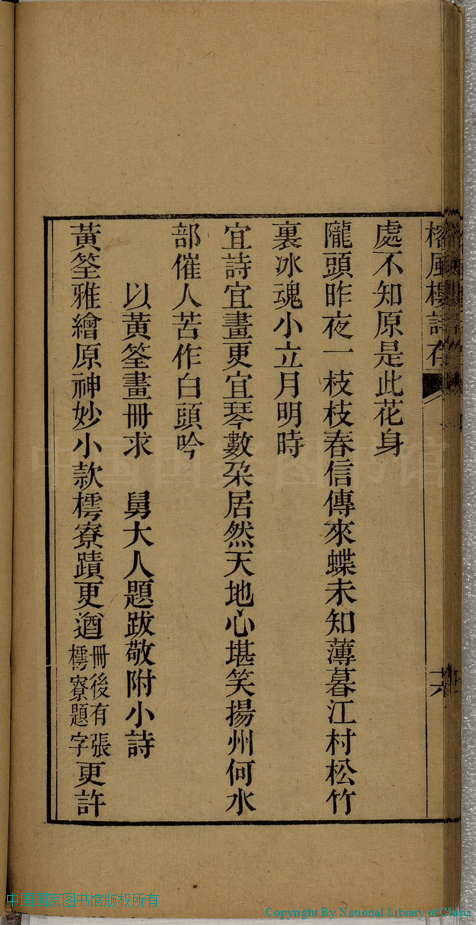 榕風樓詩存
十六
處不知原是此花身
隴頭昨夜一枝枝春信傳來蝶未知薄暮江村松竹
裏冰魂小立月明時
宜詩宜畫更宜琴數朶居然天地心堪笑揚州何水
部催人苦作白頭吟
以黃筌畫冊求 舅大人題跋敬附小詩
黃筌雅繪原神妙小款樗寮蹟更遒冊後有張樗寮題字更許
中国国家图书馆
中国国家图书馆版权所有
Copyright By National Library of China